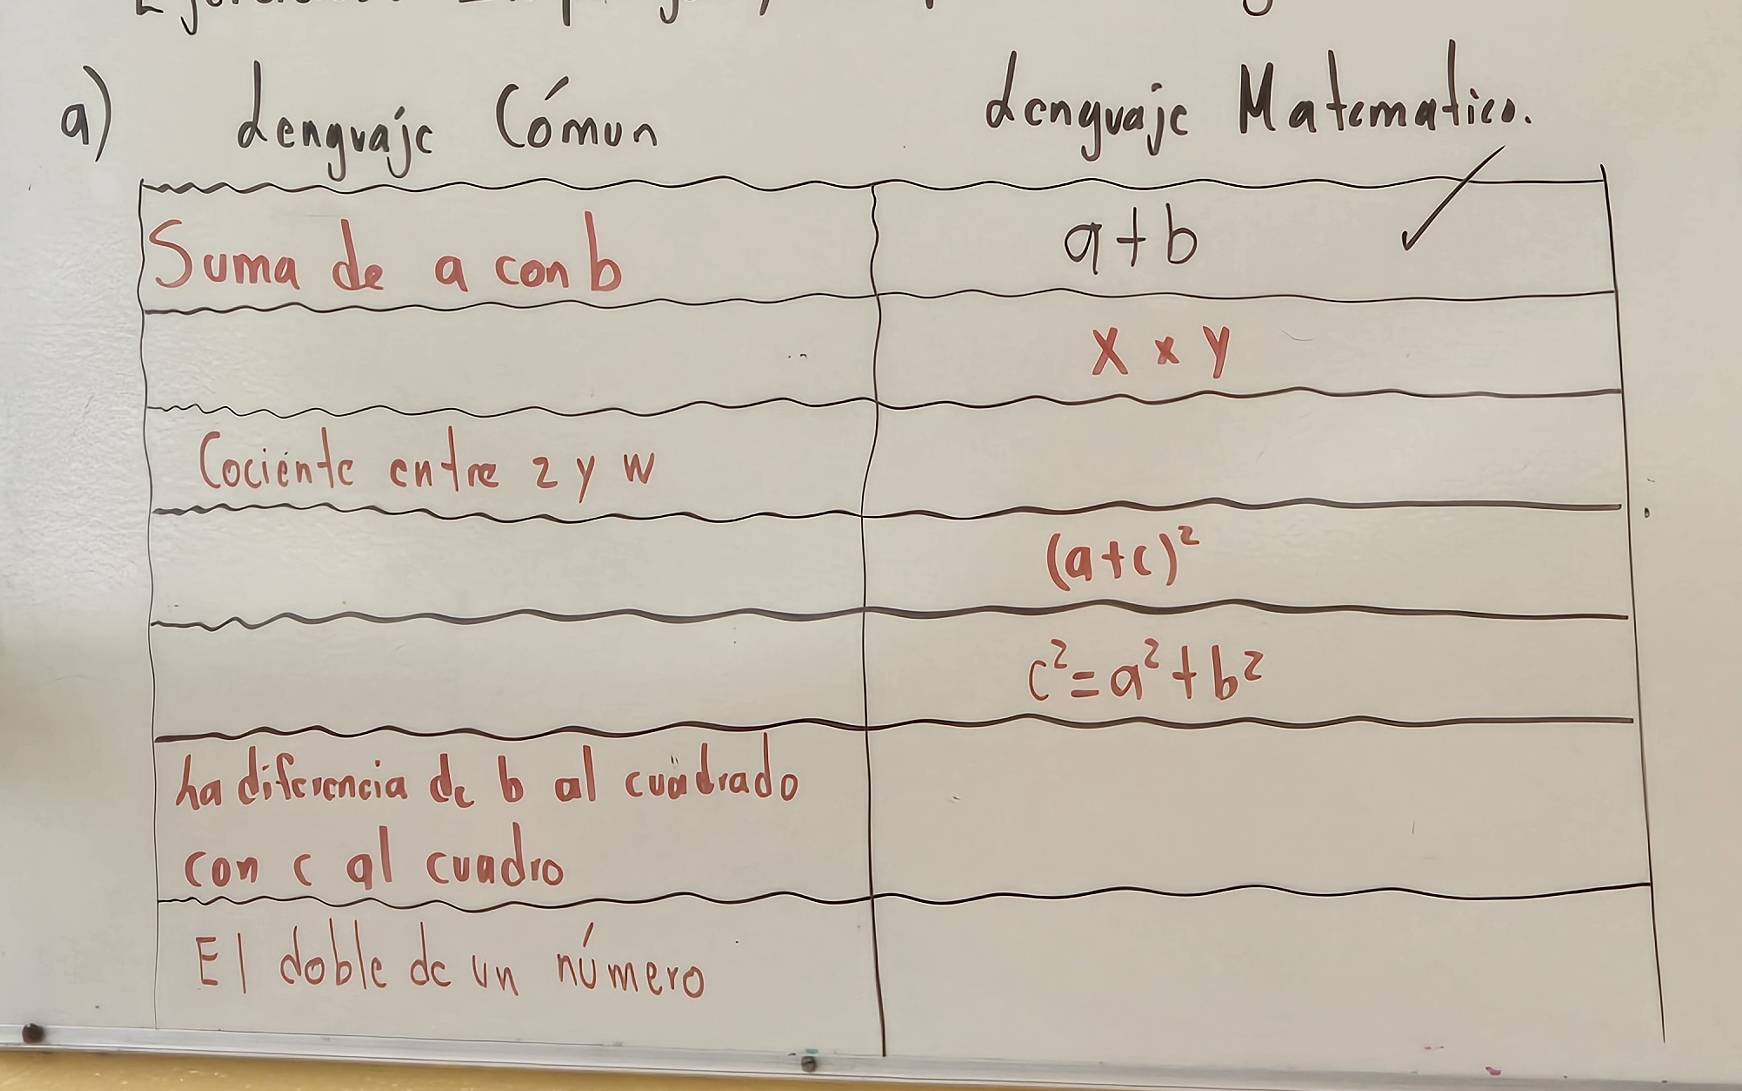 a) Lenguaje Cómun Lenguaje Matematico.
Suma de a con b a+b ✓
x × y
Cociente entre z y w
(a+c)²
c²=a²+b²
La diferencia de b al cuadrado
con c al cuadro
El doble de un número